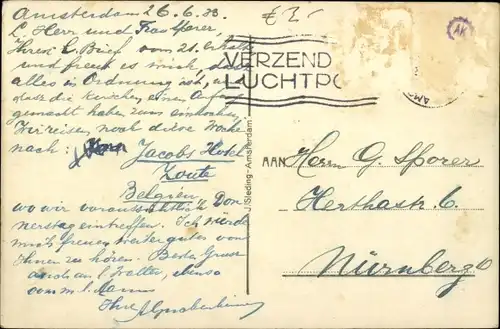 Amsterdam 26.6.33.
L. Herr und Frau Sporer,
Ihren L. Brief vom 21. erhalten
und freut es mich, daß
alles in Ordnung ist,
dass die Kirschen einen Anfang
gemacht haben zum einkochen,
Wir reisen noch diese Woche
nach: Jacobs Hotel
Zoute
Belgien
wo wir voraussichtlich Don
nerstag eintreffen. Ich würde
mich freuen weiter gutes von
Ihnen zu hören. Beste Grüsse
auch an l. Walter, ebenso
vom m. l. Mann
Ihre
£ 2.-
AK
VERZEND
LUCHTPO
AMS
J. Sleding - Amsterdam
AAN
Herrn G. Sporer
Herthastr. 6
Nürnberg